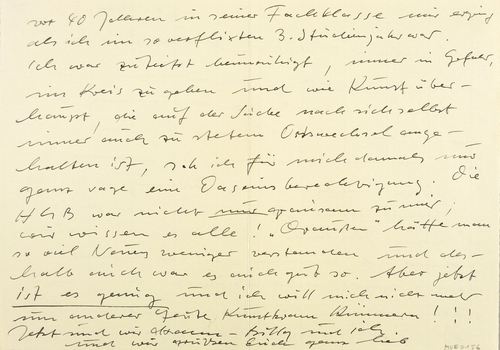 vor 40 Jahren in seiner Fachklasse mir erging
als ich im so verflixten 3. Studienjahr war.
Ich war zutiefst beunruhigt, immer in Gefahr,
im Kreis zu gehen und wie Kunst über-
haupt, die auf der Suche nach sich selbst
immer auch zu stetem Ortswechsel ange-
halten ist, sah ich für mich damals nur
ganz vage eine Daseinsberechtigung. Die
HGB war nicht nur grausam zu mir,
wir wissen es alle! hätte man
so viel Neues weniger verstanden und des-
halb auch war es auch gut so. Aber jetzt
ist es genug und ich will mich nicht mehr
um anderer Leute Kunstkram kümmern!!!
Jetzt sind wir dran – und ich.
und wir grüßen Euch ganz lieb